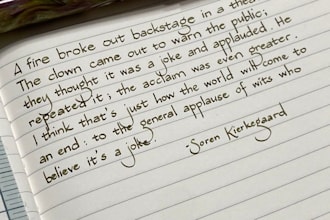 A fire broke out backstage in a thea
The clown came out to warn the public;
they thought it was a joke and applauded. He
repeated it; the acclaim was even greater.
I think that's just how the world will come to
an end: to the general applause of wits who
believe it's a joke.
-Soren Kierkegaard